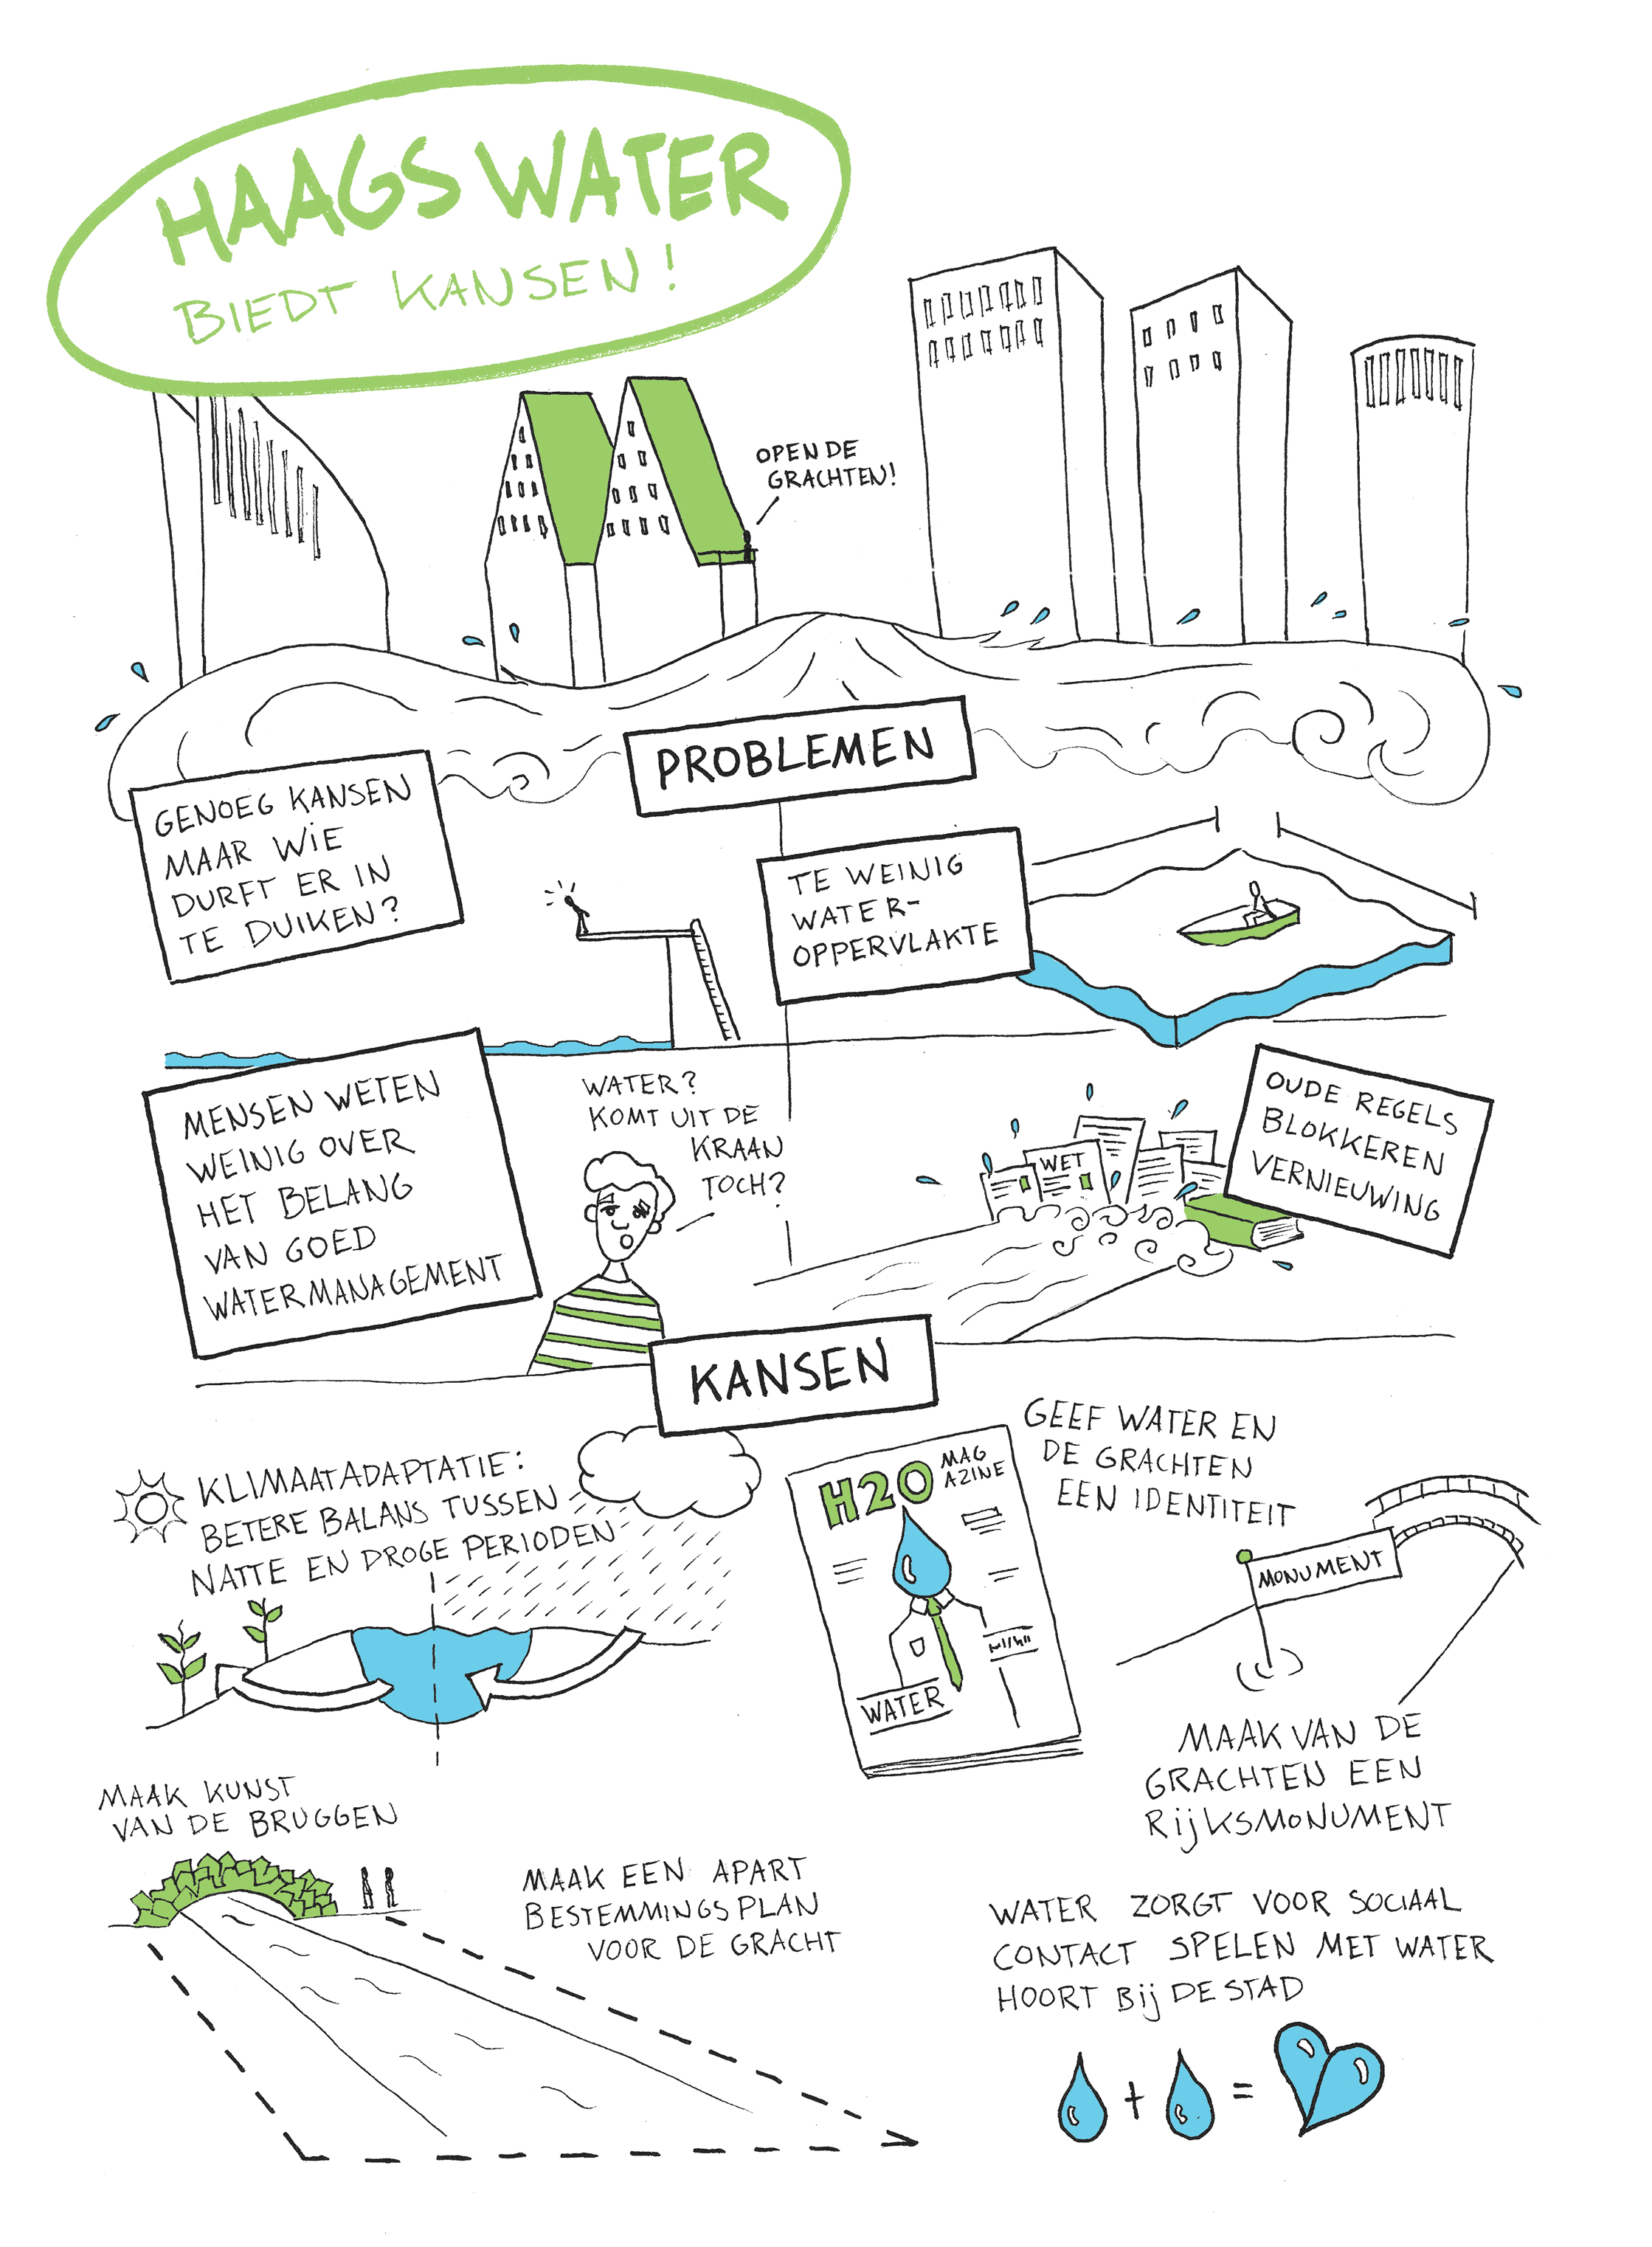 HAAGS WATER
BIEDT KANSEN!
OPEN DE
GRACHTEN!
PROBLEMEN
GENOEG KANSEN
MAAR WIE
DURFT ER IN
TE DUIKEN?
TE WEINIG
WATER-
OPPERVLAKTE
MENSEN WETEN
WEINIG OVER
HET BELANG
VAN GOED
WATERMANAGEMENT
WATER?
KOMT UIT DE
KRAAN
TOCH?
WET
OUDE REGELS
BLOKKEREN
VERNIEUWING
KANSEN
KLIMAATADAPTATIE:
BETERE BALANS TUSSEN
NATTE EN DROGE PERIODEN
H2O
MAG
AZINE
WATER
GEEF WATER EN
DE GRACHTEN
EEN IDENTITEIT
MONUMENT
MAAK VAN DE
GRACHTEN EEN
RIJKSMONUMENT
MAAK KUNST
VAN DE BRUGGEN
MAAK EEN APART
BESTEMMINGSPLAN
VOOR DE GRACHT
WATER ZORGT VOOR SOCIAAL
CONTACT SPELEN MET WATER
HOORT BIJ DE STAD
+ =